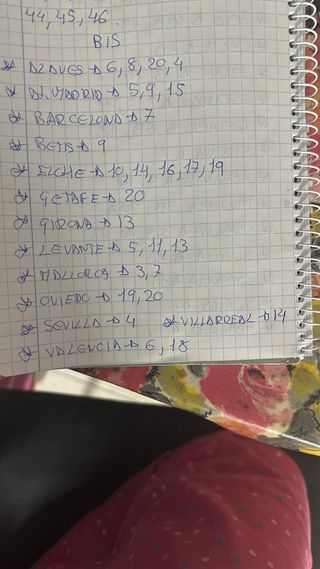 44, 45, 46.
BIS
☆ ALAVES → 6, 8, 20, 4
☆ AT. MADRID → 5, 9, 15
☆ BARCELONA → 7
☆ BETIS → 9
☆ ELCHE → 10, 14, 16, 17, 19
☆ GETAFE → 20
☆ GIRONA → 13
☆ LEVANTE → 5, 11, 13
☆ MALLORCA → 3, 7
☆ OVIEDO → 19, 20
☆ SEVILLA → 4 ☆ VILLARREAL → 14
☆ VALENCIA → 6, 18